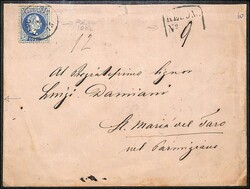 12
RECOM.
No
9
Al Pregiatissimo Signor
Luigi Damiani
St. Maria del Taro
nel Parmigiano